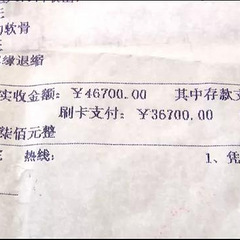 软骨
缘退缩
实收金额： ￥46700.00 其中存款支
刷卡支付： ￥36700.00
柒佰元整
热线： 1、凭